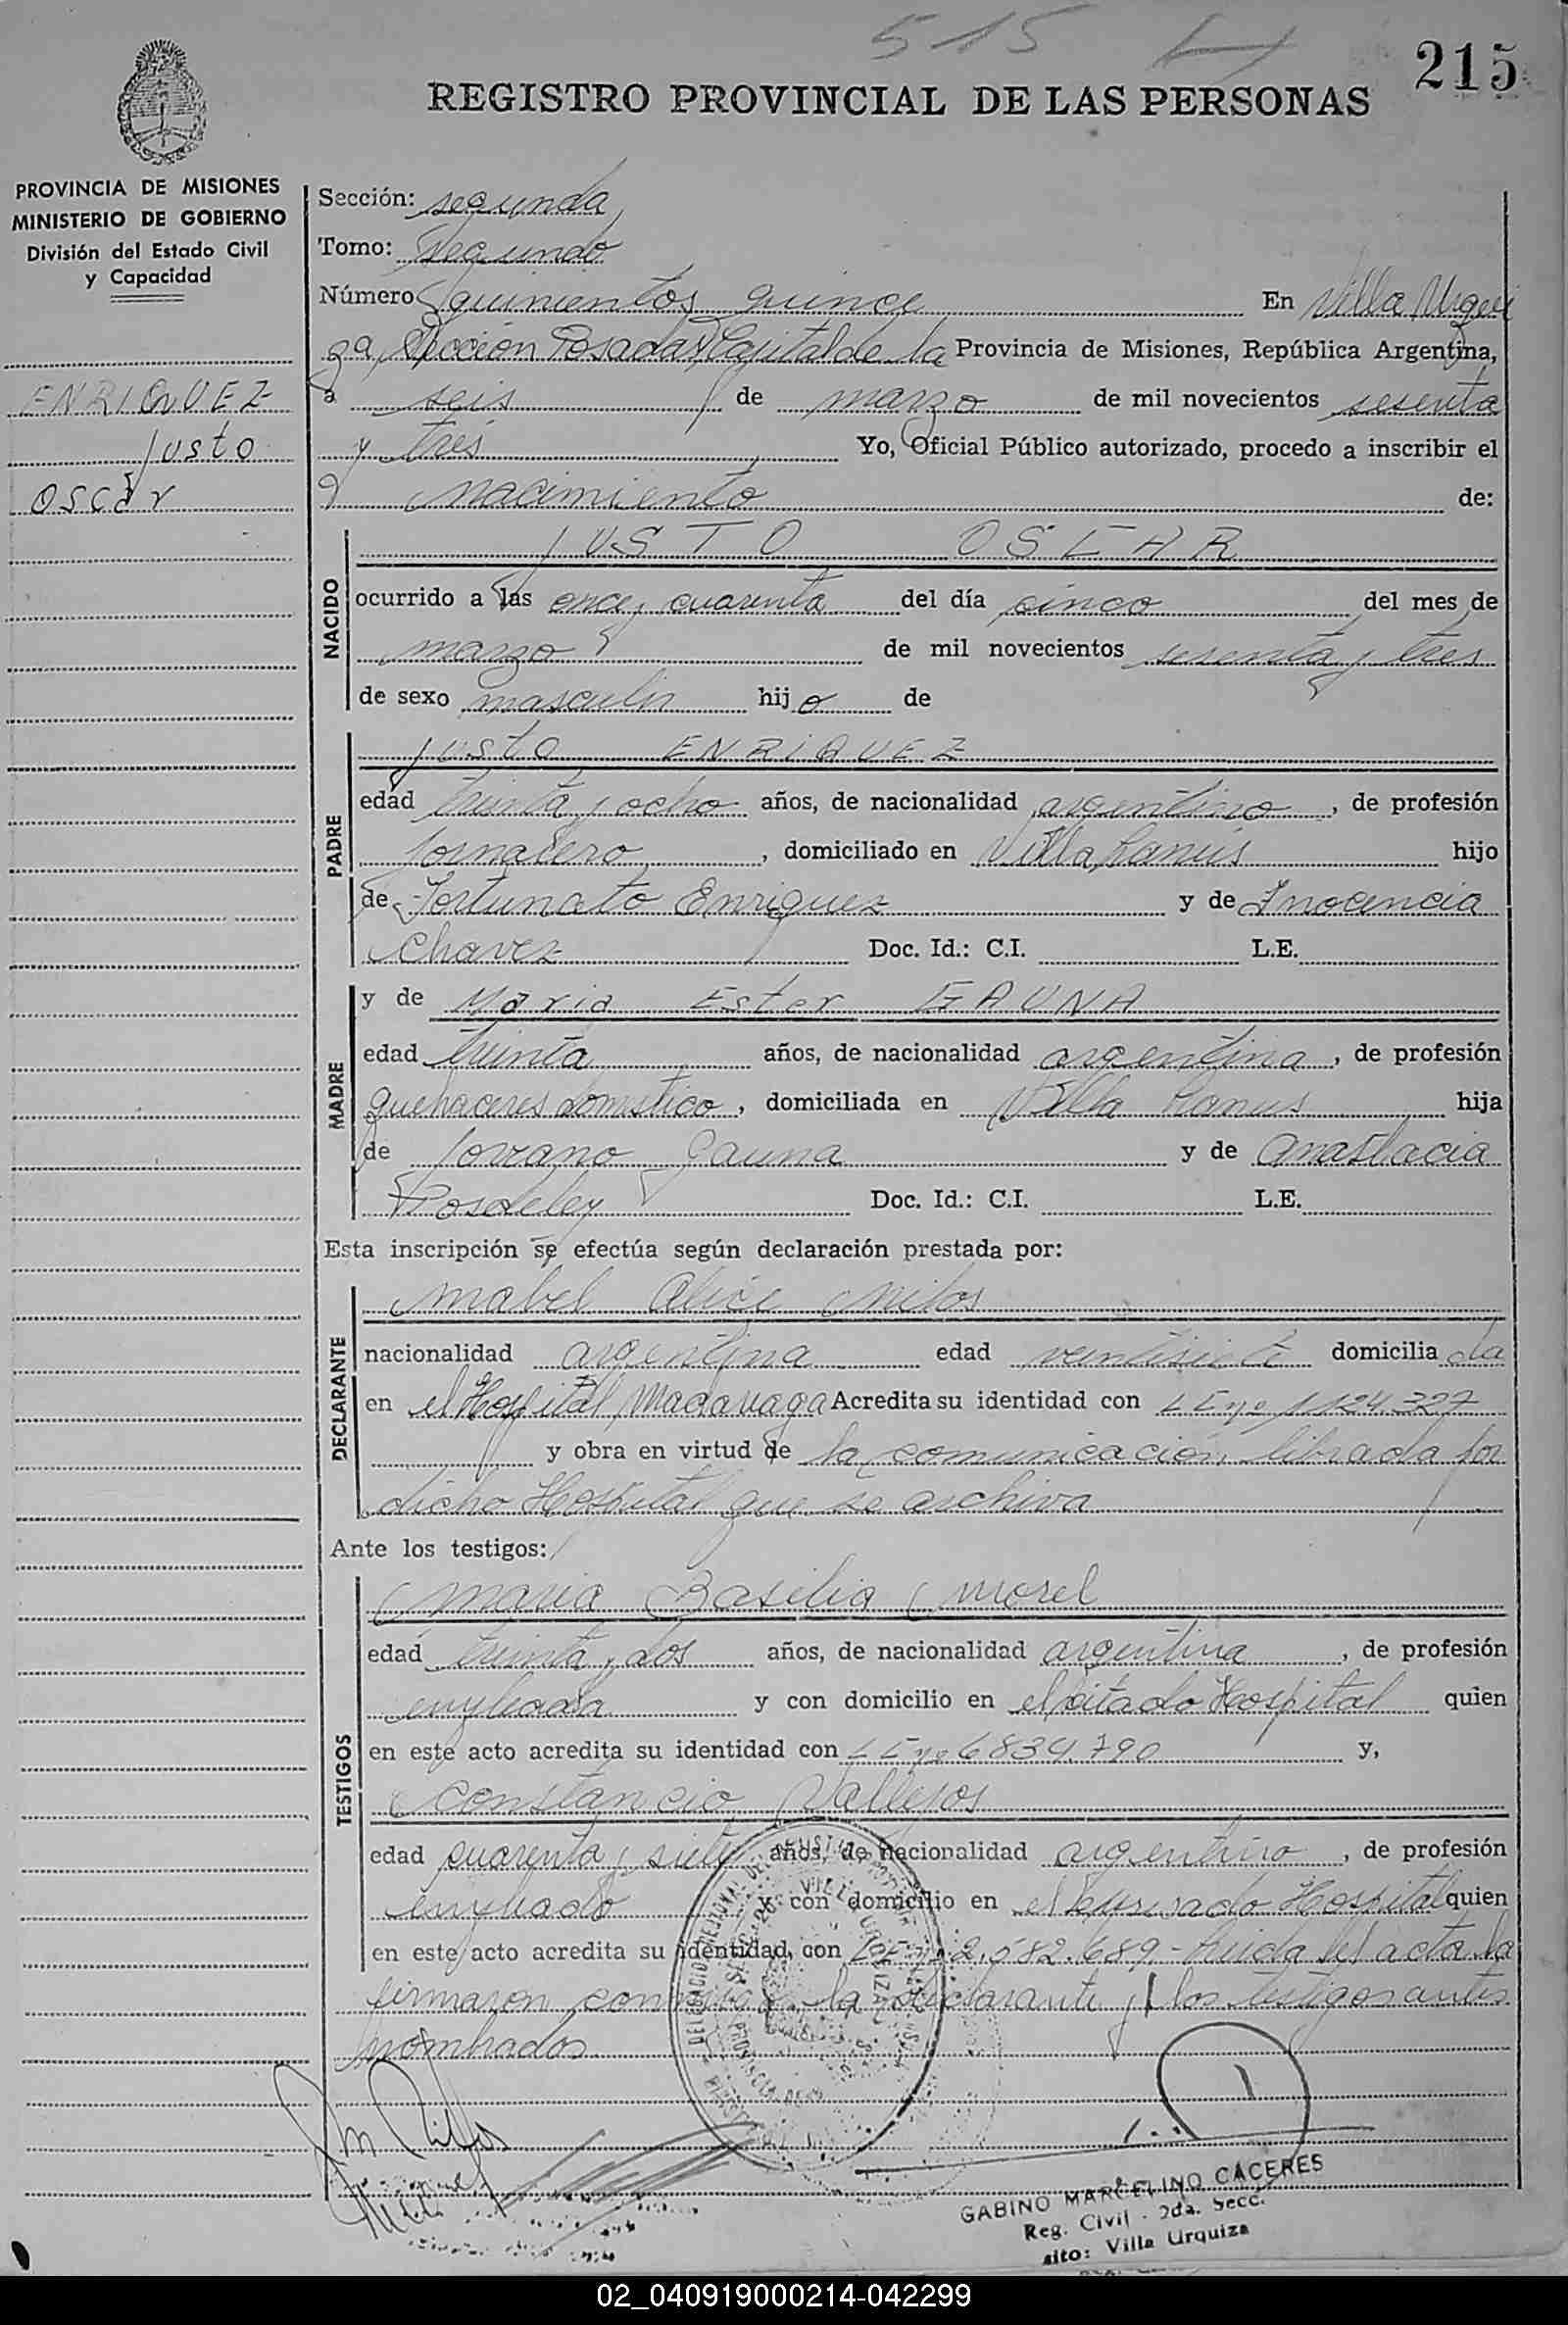 515
215
REGISTRO PROVINCIAL DE LAS PERSONAS
PROVINCIA DE MISIONES
MINISTERIO DE GOBIERNO
División del Estado Civil
y Capacidad
ENRIQUEZ
Justo
Oscar
Sección: segunda
Tomo: segundo
Número quinientos quince En Villa Urqui
za, Sección Posadas, Capital de la Provincia de Misiones, República Argentina,
a seis de marzo de mil novecientos sesenta
y tres Yo, Oficial Público autorizado, procedo a inscribir el
nacimiento de:
NACIDO
JUSTO OSCAR
ocurrido a las once y cuarenta del día cinco del mes de
marzo de mil novecientos sesenta y tres
de sexo masculin hijo de
PADRE
Justo ENRIQUEZ
edad treinta y ocho años, de nacionalidad argentino, de profesión
jornalero, domiciliado en Villa Lanús hijo
de Fortunato Enriquez y de Inocencia
Chavez Doc. Id.: C.I. L.E.
MADRE
y de Maria Ester GAUNA
edad treinta años, de nacionalidad argentina, de profesión
quehaceres domestico, domiciliada en Villa Lanus hija
de Gauna y de Anastacia
Doc. Id.: C.I. L.E.
Esta inscripción se efectúa según declaración prestada por:
DECLARANTE
Mabel Alice Milos
nacionalidad argentina edad veintisiete domiciliada
en el Hospital Madariaga Acredita su identidad con LE nº 1124.327
y obra en virtud de la comunicación librada por
dicho Hospital que se archiva
Ante los testigos:
TESTIGOS
Maria Basilia Morel
edad treinta y dos años, de nacionalidad argentina, de profesión
empleada y con domicilio en el citado Hospital quien
en este acto acredita su identidad con LE nº 6834.790 y,
Constancio Vallejos
edad cuarenta y siete años, de nacionalidad argentino, de profesión
empleado y con domicilio en el Hospital quien
en este acto acredita su identidad con LE nº 2.582.689 - leida el acta la
firmaron conmigo la declarante y los testigos antes
nombrados
GABINO MARCELINO CACERES
Reg. Civil - 2da. Secc.
sito: Villa Urquiza
02_040919000214-042299